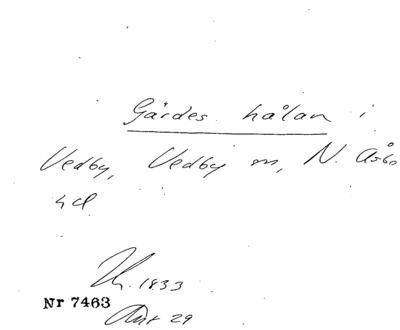 Gärdes hålan i
Vedby, Vedby sn, N. Åsbo
hd.
1833
Nr 7463
Akt 29